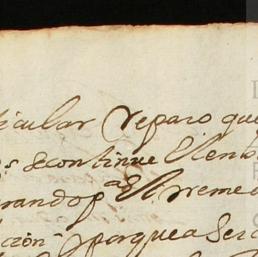 icular reparo que
se continue el ent
rando p.a el rreme
cion y porque a se